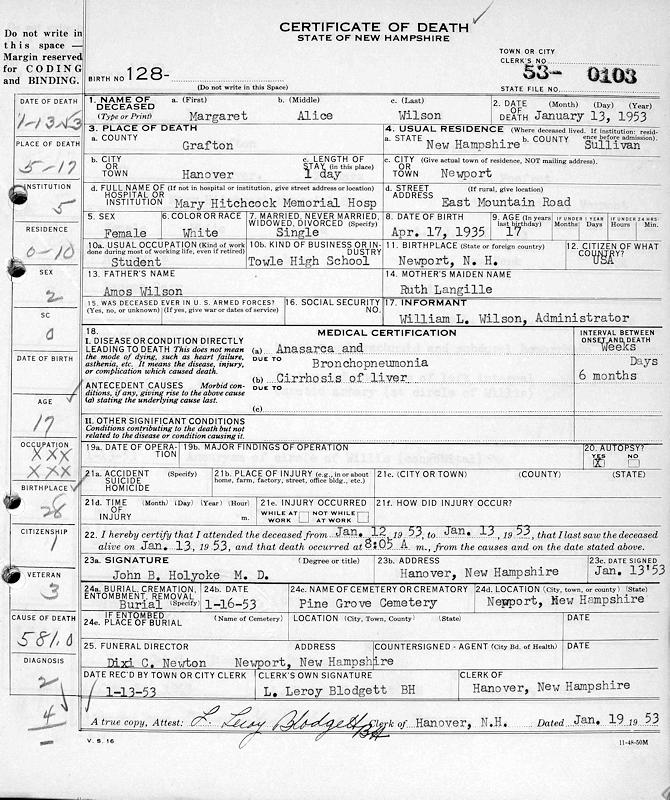 Do not write in
this space —
Margin reserved
for CODING
and BINDING.
CERTIFICATE OF DEATH
STATE OF NEW HAMPSHIRE
TOWN OR CITY
CLERK'S NO.
53- 0103
STATE FILE NO.
BIRTH NO 128-
(Do not write in this Space)
DATE OF DEATH
1-13-53
PLACE OF DEATH
5-17
INSTITUTION
5
RESIDENCE
0-10
SEX
2
SC
0
DATE OF BIRTH
AGE
17
OCCUPATION
XXX
XXX
BIRTHPLACE
28
CITIZENSHIP
1
VETERAN
3
CAUSE OF DEATH
581.0
DIAGNOSIS
2
4
1. NAME OF DECEASED (Type or Print) a. (First) b. (Middle) c. (Last)
Margaret Alice Wilson
2. DATE OF DEATH (Month) (Day) (Year)
January 13, 1953
3. PLACE OF DEATH
a. COUNTY
Grafton
4. USUAL RESIDENCE (Where deceased lived. If institution: residence before admission).
a. STATE New Hampshire b. COUNTY Sullivan
b. CITY OR TOWN Hanover
c. LENGTH OF STAY (in this place)
1 day
c. CITY OR TOWN (Give actual town of residence, NOT mailing address).
Newport
d. FULL NAME OF HOSPITAL OR INSTITUTION (If not in hospital or institution, give street address or location)
Mary Hitchcock Memorial Hosp
d. STREET ADDRESS (If rural, give location)
East Mountain Road
5. SEX
Female
6. COLOR OR RACE
White
7. MARRIED, NEVER MARRIED, WIDOWED, DIVORCED (Specify)
Single
8. DATE OF BIRTH
Apr. 17, 1935
9. AGE (In years last birthday)
17
IF UNDER 1 YEAR
Months Days
IF UNDER 24 HRS.
Hours Min.
10a. USUAL OCCUPATION (Kind of work done during most of working life, even if retired)
Student
10b. KIND OF BUSINESS OR INDUSTRY
Towle High School
11. BIRTHPLACE (State or foreign country)
Newport, N. H.
12. CITIZEN OF WHAT COUNTRY?
USA
13. FATHER'S NAME
Amos Wilson
14. MOTHER'S MAIDEN NAME
Ruth Langille
15. WAS DECEASED EVER IN U. S. ARMED FORCES?
(Yes, no, or unknown) (If yes, give war or dates of service)
16. SOCIAL SECURITY NO.
17. INFORMANT
William L. Wilson, Administrator
18.
MEDICAL CERTIFICATION
INTERVAL BETWEEN ONSET AND DEATH
I. DISEASE OR CONDITION DIRECTLY LEADING TO DEATH This does not mean the mode of dying, such as heart failure, asthenia, etc. It means the disease, injury, or complication which caused death.
(a) Anasarca and
Weeks
DUE TO Bronchopneumonia
Days
ANTECEDENT CAUSES Morbid conditions, if any, giving rise to the above cause (a) stating the underlying cause last.
(b) Cirrhosis of liver
6 months
DUE TO
(c)
II. OTHER SIGNIFICANT CONDITIONS
Conditions contributing to the death but not related to the disease or condition causing it.
19a. DATE OF OPERATION
19b. MAJOR FINDINGS OF OPERATION
20. AUTOPSY?
YES X NO
21a. ACCIDENT SUICIDE HOMICIDE (Specify)
21b. PLACE OF INJURY (e.g., in or about home, farm, factory, street, office bldg., etc.)
21c. (CITY OR TOWN) (COUNTY) (STATE)
21d. TIME OF INJURY (Month) (Day) (Year) (Hour) m.
21e. INJURY OCCURRED
WHILE AT WORK NOT WHILE AT WORK
21f. HOW DID INJURY OCCUR?
22. I hereby certify that I attended the deceased from Jan. 12, 1953, to Jan. 13, 1953, that I last saw the deceased
alive on Jan. 13, 1953, and that death occurred at 8:05 A m., from the causes and on the date stated above.
23a. SIGNATURE (Degree or title)
John B. Holyoke M. D.
23b. ADDRESS
Hanover, New Hampshire
23c. DATE SIGNED
Jan. 13'53
24a. BURIAL, CREMATION, ENTOMBMENT, REMOVAL (Specify)
Burial
24b. DATE
1-16-53
24c. NAME OF CEMETERY OR CREMATORY
Pine Grove Cemetery
24d. LOCATION (City, town, or county) (State)
Newport, New Hampshire
IF ENTOMBED
24e. PLACE OF BURIAL (Name of Cemetery) LOCATION (City, Town, County) (State) DATE
25. FUNERAL DIRECTOR ADDRESS COUNTERSIGNED - AGENT (City Bd. of Health) DATE
Dixi C. Newton Newport, New Hampshire
DATE REC'D BY TOWN OR CITY CLERK
1-13-53
CLERK'S OWN SIGNATURE
L. Leroy Blodgett BH
CLERK OF
Hanover, New Hampshire
A true copy, Attest: L. Leroy Blodgett BH Clerk of Hanover, N.H. Dated Jan. 19 1953
V. S. 16
11-48-50M